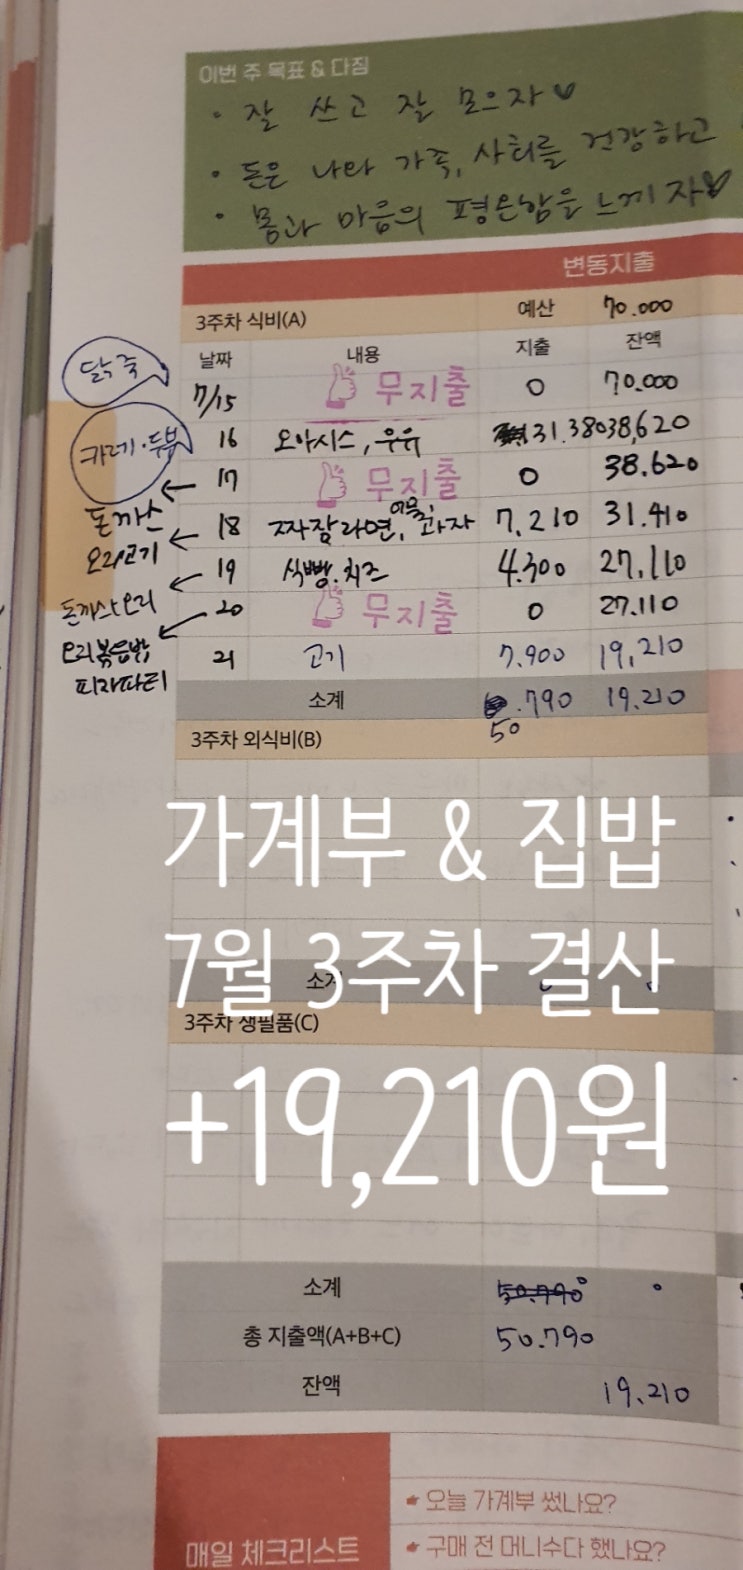 이번 주 목표 & 다짐
• 잘 쓰고 잘 모으자♡
• 돈은 나와 가족, 사회를 건강하고
• 몸과 마음의 평온함을 느끼자♡
변동지출
3주차 식비(A) 예산 70.000
날짜 내용 지출 잔액
닭죽
7/15 무지출 0 70.000
카레·두부
16 오아시스, 우유 31.380 38,620
17 무지출 0 38.620
돈까스
18 짜장라면, 과자 7,210 31.410
오리고기
19 식빵.치즈 4.300 27,110
돈까스, 오리
20 무지출 0 27.110
오리볶음밥
피자파티
21 고기 7.900 19,210
소계 .790 19.210
50
3주차 외식비(B)
가계부 & 집밥
7월 3주차 결산
소계
3주차 생필품(C)
+19,210원
소계 50.790 0 0
총 지출액(A+B+C) 50.790
잔액 19,210
매일 체크리스트
오늘 가계부 썼나요?
구매 전 머니수다 했나요?